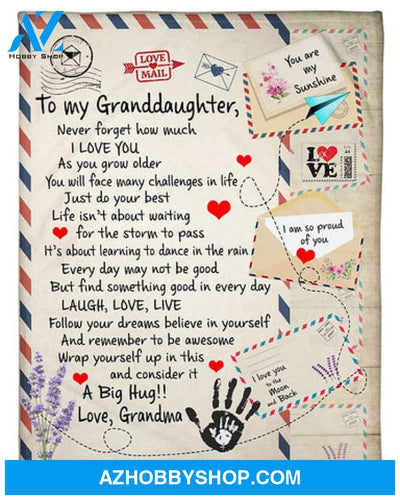 AZ
HOBBY SHOP
LOVE
MAIL
You are
my
Sunshine
To my Granddaughter,
Never forget how much
I LOVE YOU
As you grow older
You will face many challenges in life
Just do your best
Life isn't about waiting
for the storm to pass
It's about learning to dance in the rain
Every day may not be good
But find something good in every day
LAUGH, LOVE, LIVE
Follow your dreams believe in yourself
And remember to be awesome
Wrap yourself up in this
and consider it
A Big Hug!!
Love, Grandma
LOVE
I am so proud
of you
I love you
to the
Moon
and
Back
AZHOBBYSHOP.COM